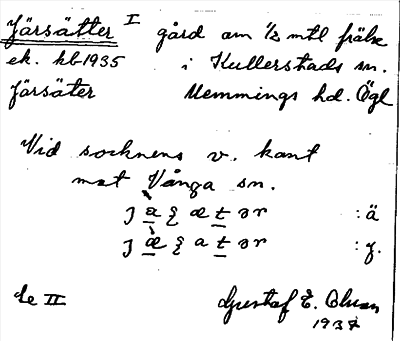 Järsätter I gård om 1/2 mtl frälse
ek. kb 1935 i Kullerstads sn.
Järsäter Memmings hd. Ögl
Vid socknens v. kant
mot Vånga sn.
: ä
: y.
Gustaf E. Olsson
1937